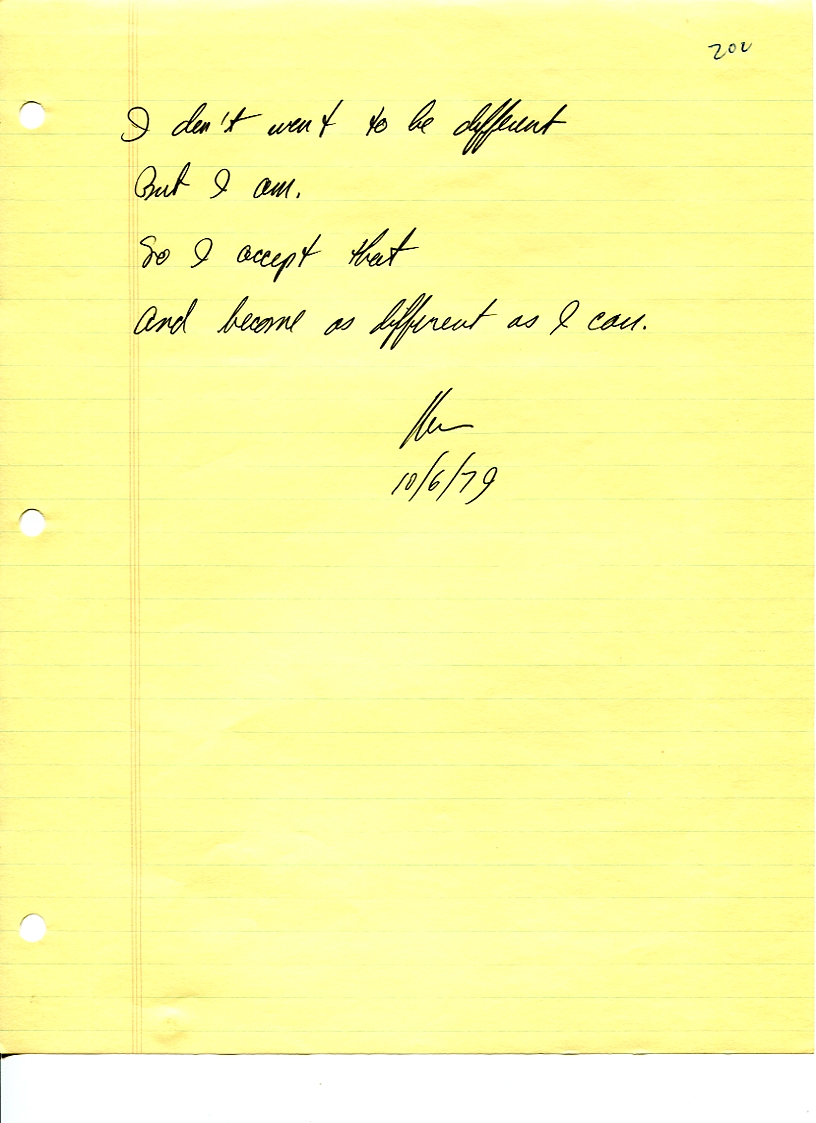 202
I don't want to be different
But I am.
So I accept that
And become as different as I can.
10/6/79